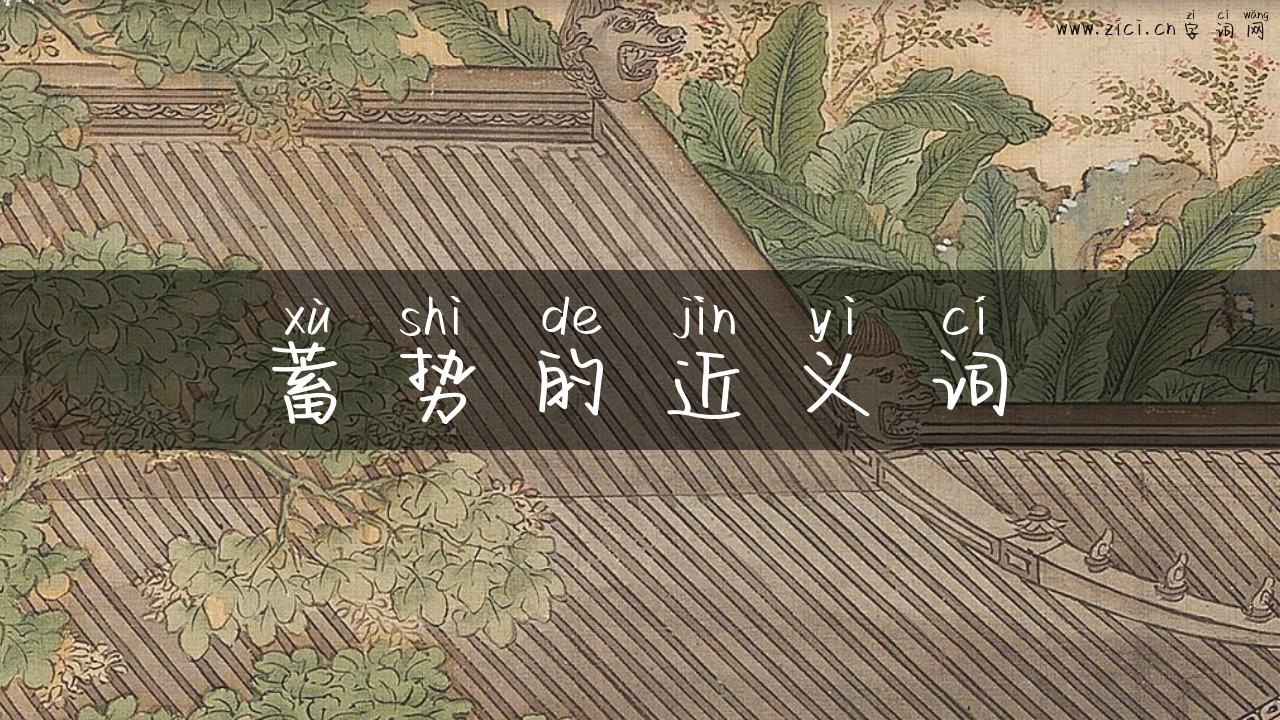 zì cí wǎng
www.zici.cn 字词网
xù shì de jìn yì cí
蓄势的近义词